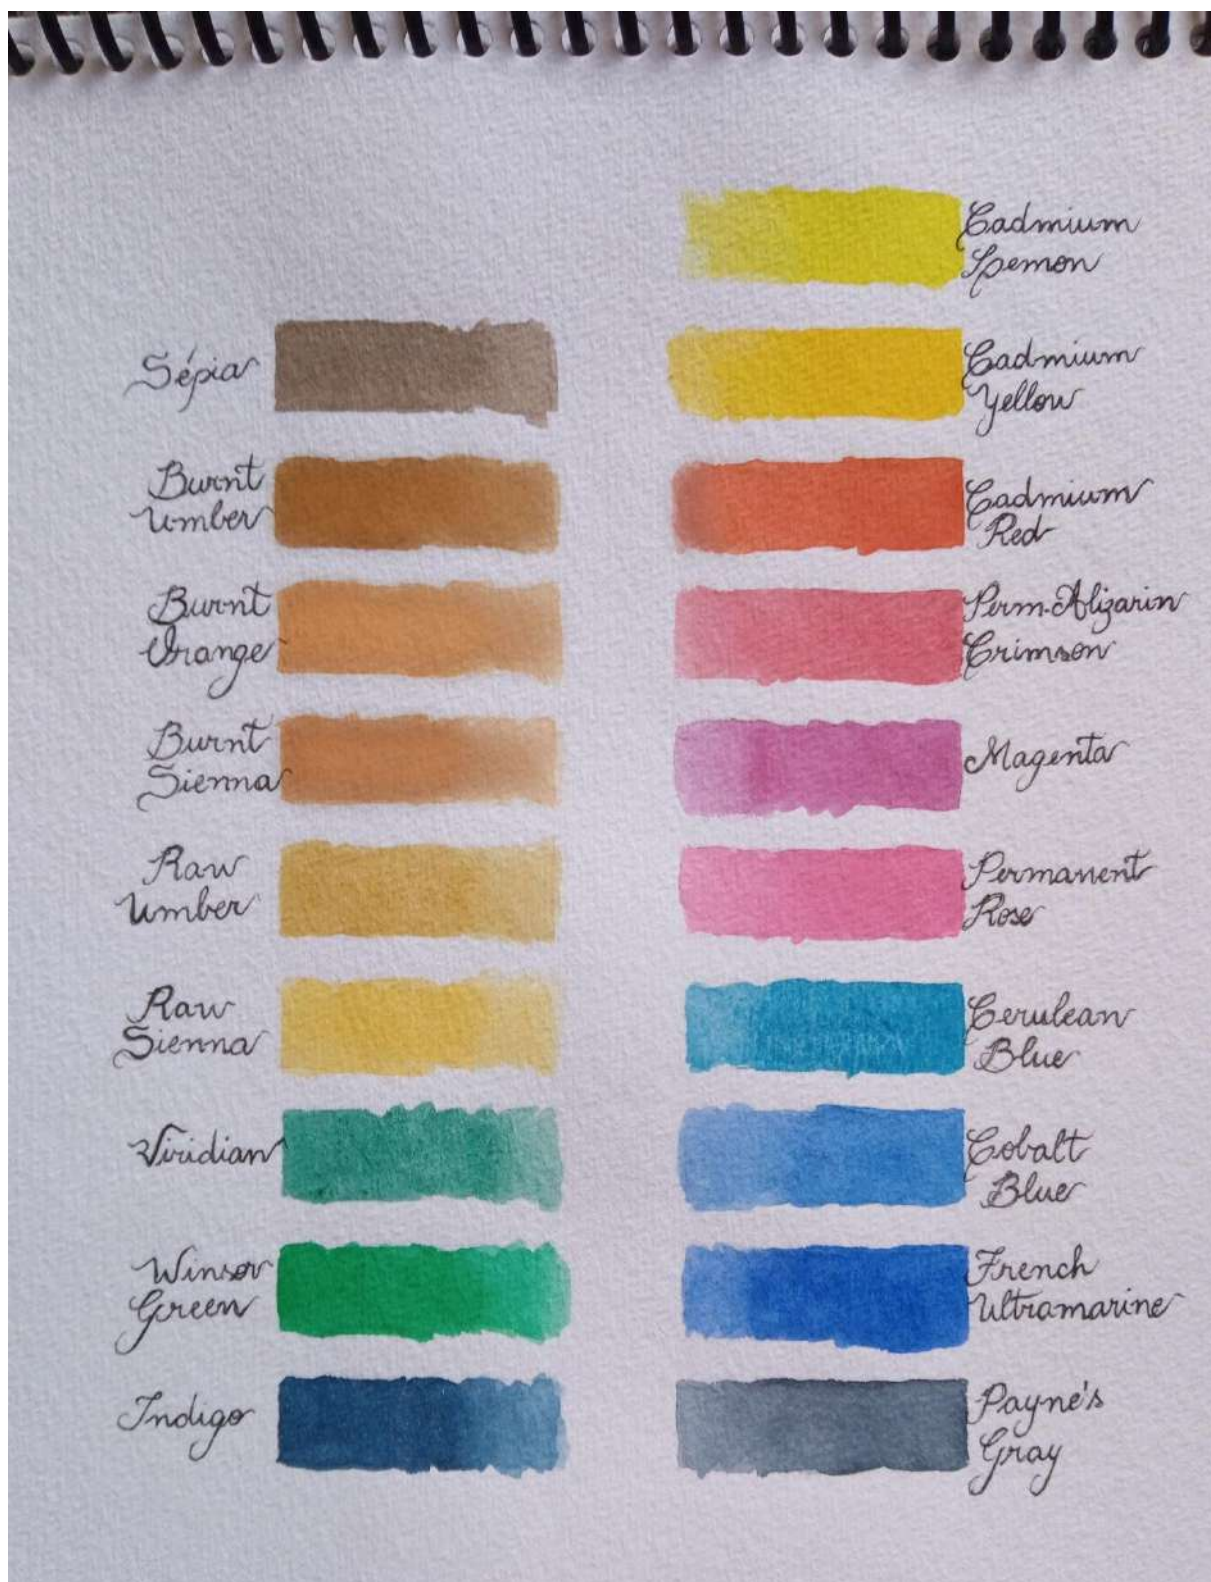 Sépia
Burnt
Umber
Burnt
Orange
Burnt
Sienna
Raw
Umber
Raw
Sienna
Viridian
Winsor
Green
Indigo
Cadmium
Lemon
Cadmium
Yellow
Cadmium
Red
Perm. Alizarin
Crimson
Magenta
Permanent
Rose
Cerulean
Blue
Cobalt
Blue
French
Ultramarine
Payne's
Gray